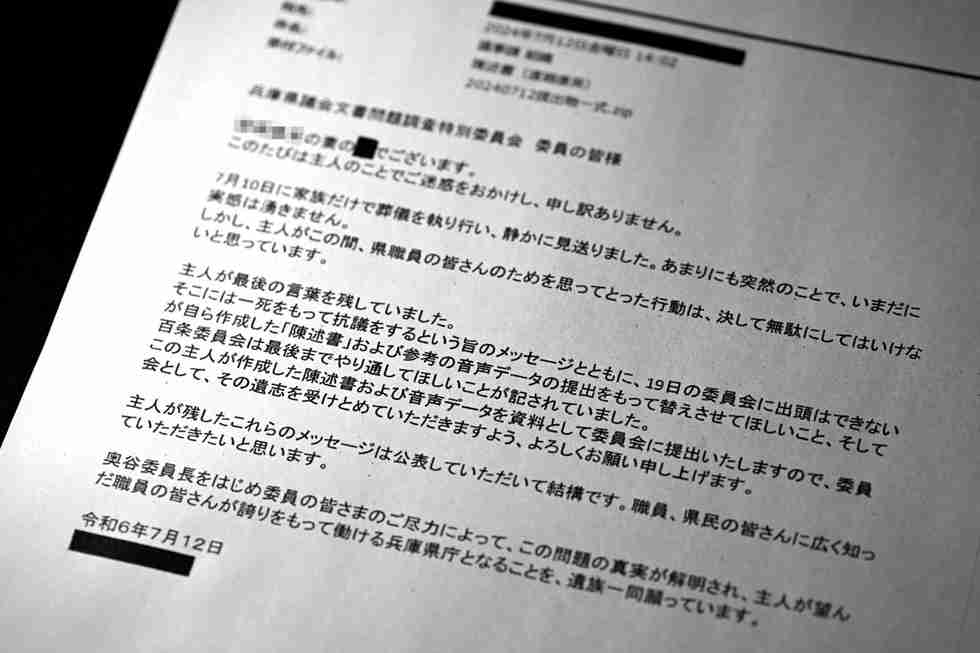 宛先:
件名:
添付ファイル:
2024年7月12日金曜日 16:02
議事課 組織
陳述書（遺族意見）
20240712提出物一式.zip
兵庫県議会文書問題調査特別委員会 委員の皆様
の妻の でございます。
このたびは主人のことでご迷惑をおかけし、申し訳ありません。
7月10日に家族だけで葬儀を執り行い、静かに見送りました。あまりにも突然のことで、いまだに
実感は湧きません。
しかし、主人がこの間、県職員の皆さんのためを思ってとった行動は、決して無駄にしてはいけな
いと思っています。
主人が最後の言葉を残していました。
そこには一死をもって抗議をするという旨のメッセージとともに、19日の委員会に出頭はできない
が自ら作成した「陳述書」および参考の音声データの提出をもって替えさせてほしいこと、そして
百条委員会は最後までやり通してほしいことが記されていました。
この主人が作成した陳述書および音声データを資料として委員会に提出いたしますので、委員
会として、その遺志を受けとめていただきますよう、よろしくお願い申し上げます。
主人が残したこれらのメッセージは公表していただいて結構です。職員、県民の皆さんに広く知っ
ていただきたいと思います。
奥谷委員長をはじめ委員の皆さまのご尽力によって、この問題の真実が解明され、主人が望ん
だ職員の皆さんが誇りをもって働ける兵庫県庁となることを、遺族一同願っています。
令和6年7月12日